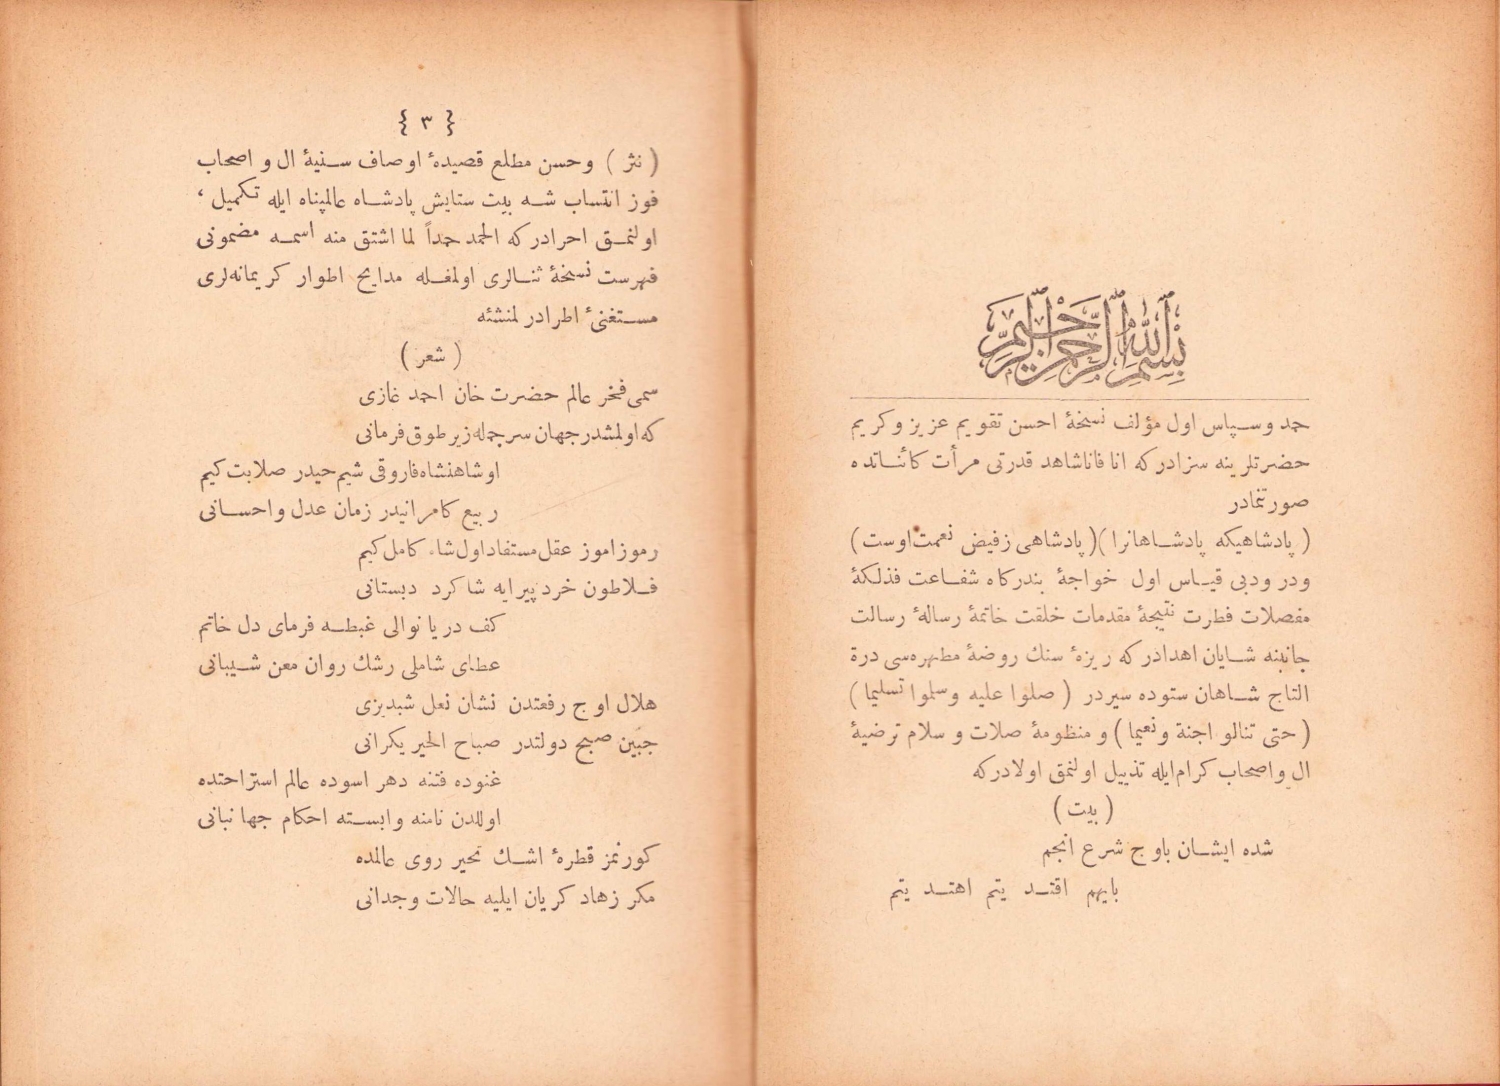 بسم الله الرحمن الرحيم
حمد وسپاس اول مؤلف نسخۀ احسن تقويم عزيز وكريم
حضرتلرينه سزادركه انا فاناشاهد قدرتى مرأت كائناتده
صورتنمادر
( پادشاهيكه پادشاهانرا )( پادشاهى زفيض نعمت اوست )
ودر ودبى قياس اول خواجۀ بندركاه شفاعت فذلكۀ
مفصلات فطرت نتيجۀ مقدمات خلقت خاتمۀ رسالۀ رسالت
جانبنه شايان اهدادركه ريزۀ سنك روضۀ مطهره‌سى درة
التاج شاهان ستوده سيردر ( صلوا عليه وسلموا تسليما )
( حتى تنالو اجنة ونعيما ) و منظومۀ صلات و سلام ترضيۀ
ال واصحاب كرام ايله تذييل اولنمق اولادركه
( بيت )
شده ايشان باوج شرع انجم
بايهم اقتديتم اهتديتم
﴿ ٣ ﴾
( نثر ) وحسن مطلع قصيدۀ اوصاف سنيۀ ال و اصحاب
فوز انتساب شه بيت ستايش پادشاه عالمپناه ايله تكميل ،
اولنمق احرادركه الحمد حمداً لما اشتق منه اسمه مضمونى
فهرست نسخۀ ثنالرى اولمغله مدايح اطوار كريمانه‌لرى
مستغنئ اطرادر لمنشئه
( شعر )
سمى فخر عالم حضرت خان احمد غازى
كه اولمشدر جهان سرجمله زير طوق فرمانى
اوشاهنشاه فاروقى شيم حيدر صلابت كيم
ربيع كامرانيدر زمان عدل واحسانى
رموزاموز عقل مستفاد اول شاه كامل كيم
فلاطون خرد پيرايه شاكرد دبستانى
كف دريا نوالى غبطه فرماى دل خاتم
عطاى شاملى رشك روان معن شيبانى
هلال اوج رفعتدن نشان نعل شبديزى
جبين صبح دولتدر صباح الخير يكرانى
غنوده فتنه دهر اسوده عالم استراحتده
اوللدن نامنه وابسته احكام جهانبانى
كورنمز قطرۀ اشك تحير روى عالمده
مكر زهاد كريان ايليه حالات وجدانى